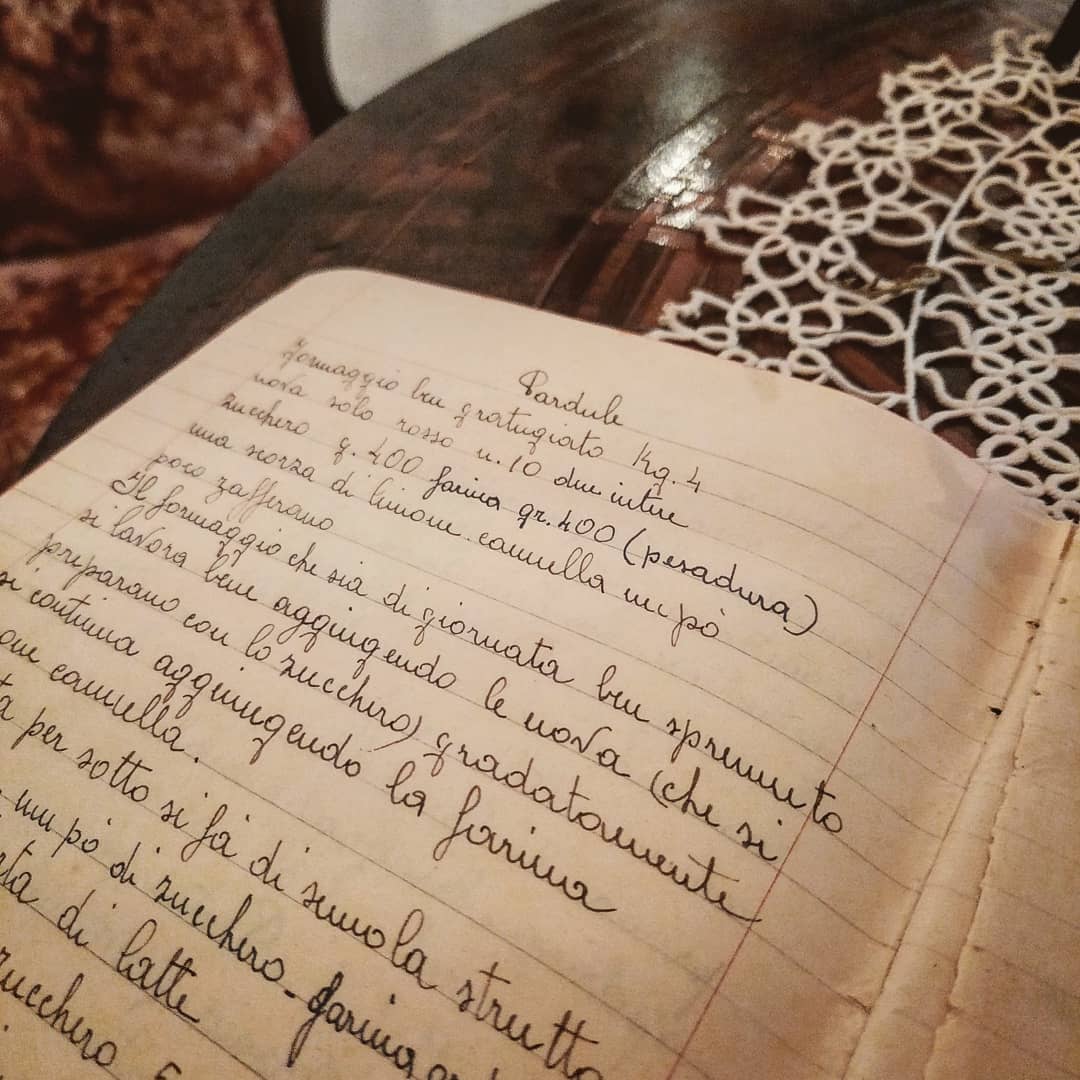 Pardule
Formaggio ben gratugiato Kg. 4
uova solo rosso n. 10 due intere
zucchero g. 400 farina gr. 400 (pesadura)
una scorza di limone. cannella un pò
poco zafferano
Il formaggio che sia di giornata ben spremuto
si lavora bene aggiungendo le uova (che si
preparano con lo zucchero) gradatamente
si continua aggiungendo la farina
cannella.
per sotto si fà di semola strutto
un pò di zucchero - farina
di latte
zucchero